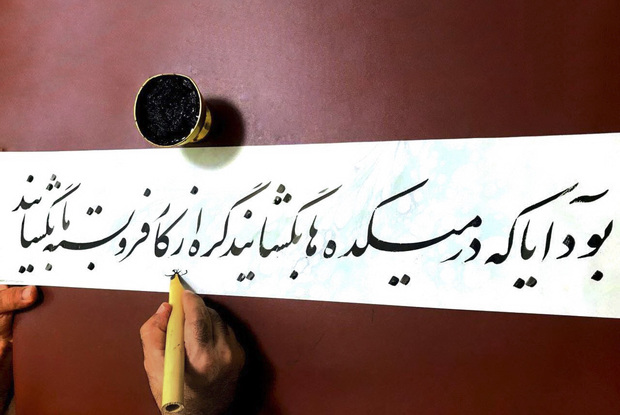 بود آیا که در میکده ها بگشایند گره از کار فروبسته ما بگشایند